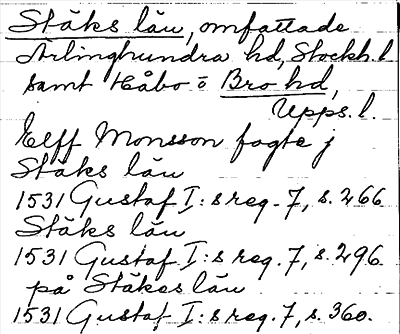 Stäks län, omfattade
Ärlinghundra hd, Stockh. l.
samt Håbo o Bro hd,
Upps. l.
Elff Monsson fogte j
Stäks län
1531 Gustaf I:s reg. 7, s. 266
Stäks län
1531 Gustaf I:s reg. 7, s. 296.
på Stäkes län
1531 Gustaf I:s reg. 7, s. 360.